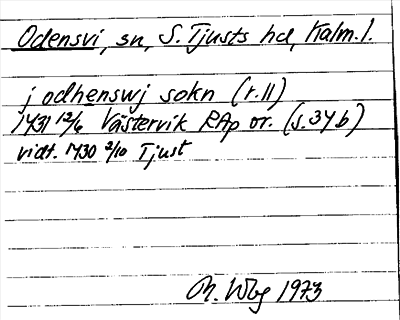 Odensvi, sn, S. Tjusts hd, Kalm. l.
j odhenswj sokn (r. 11)
1431 12/6 Västervik RAp or. (s. 34 b)
vidt. 1430 2/10 Tjust
1973